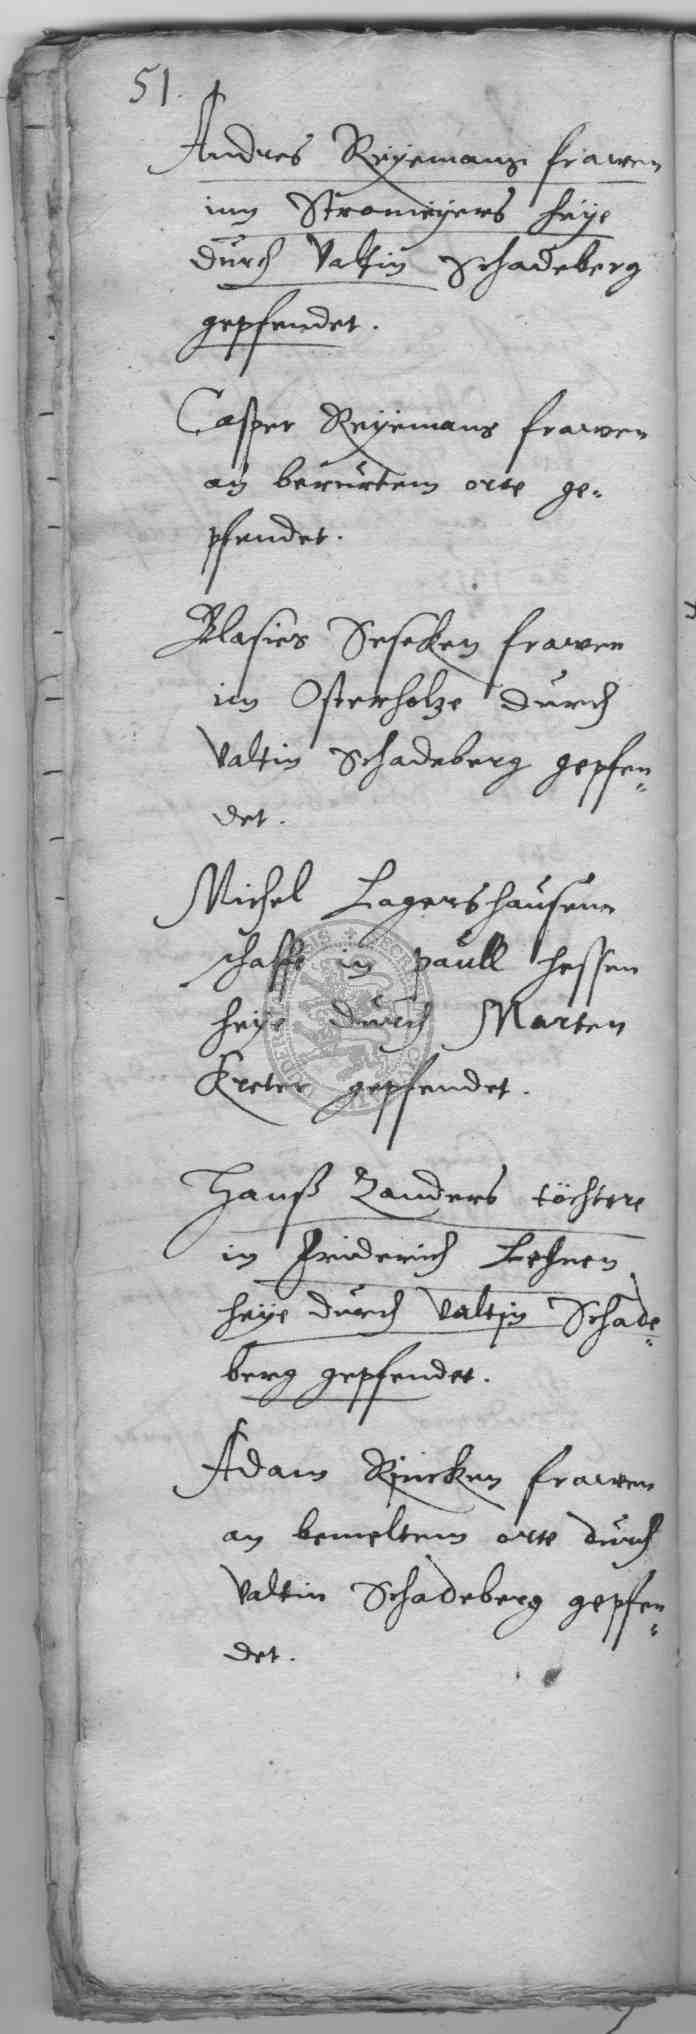 51.
Andres Reyemans frawen
inn Stromeyers heye
durch Valtin Schadeberg
gepfendet.
Casper Reyemans frawen
an berurtem orte ge-
pfendet.
Blasies Seseken frawen
im Osterholze durch
Valtin Schadeberg gepfen-
det.
Michel Lagershausenn
schaffe in paull hessen
heye durch Marten
Kreter gepfendet.
Hanß Zanders töchtere
in Friderich Lehnen
heye durch Valtin Schade-
berg gepfendet.
Adam Rincken frawen
an bemeltem orte durch
Valtin Schadeberg gepfen-
det.